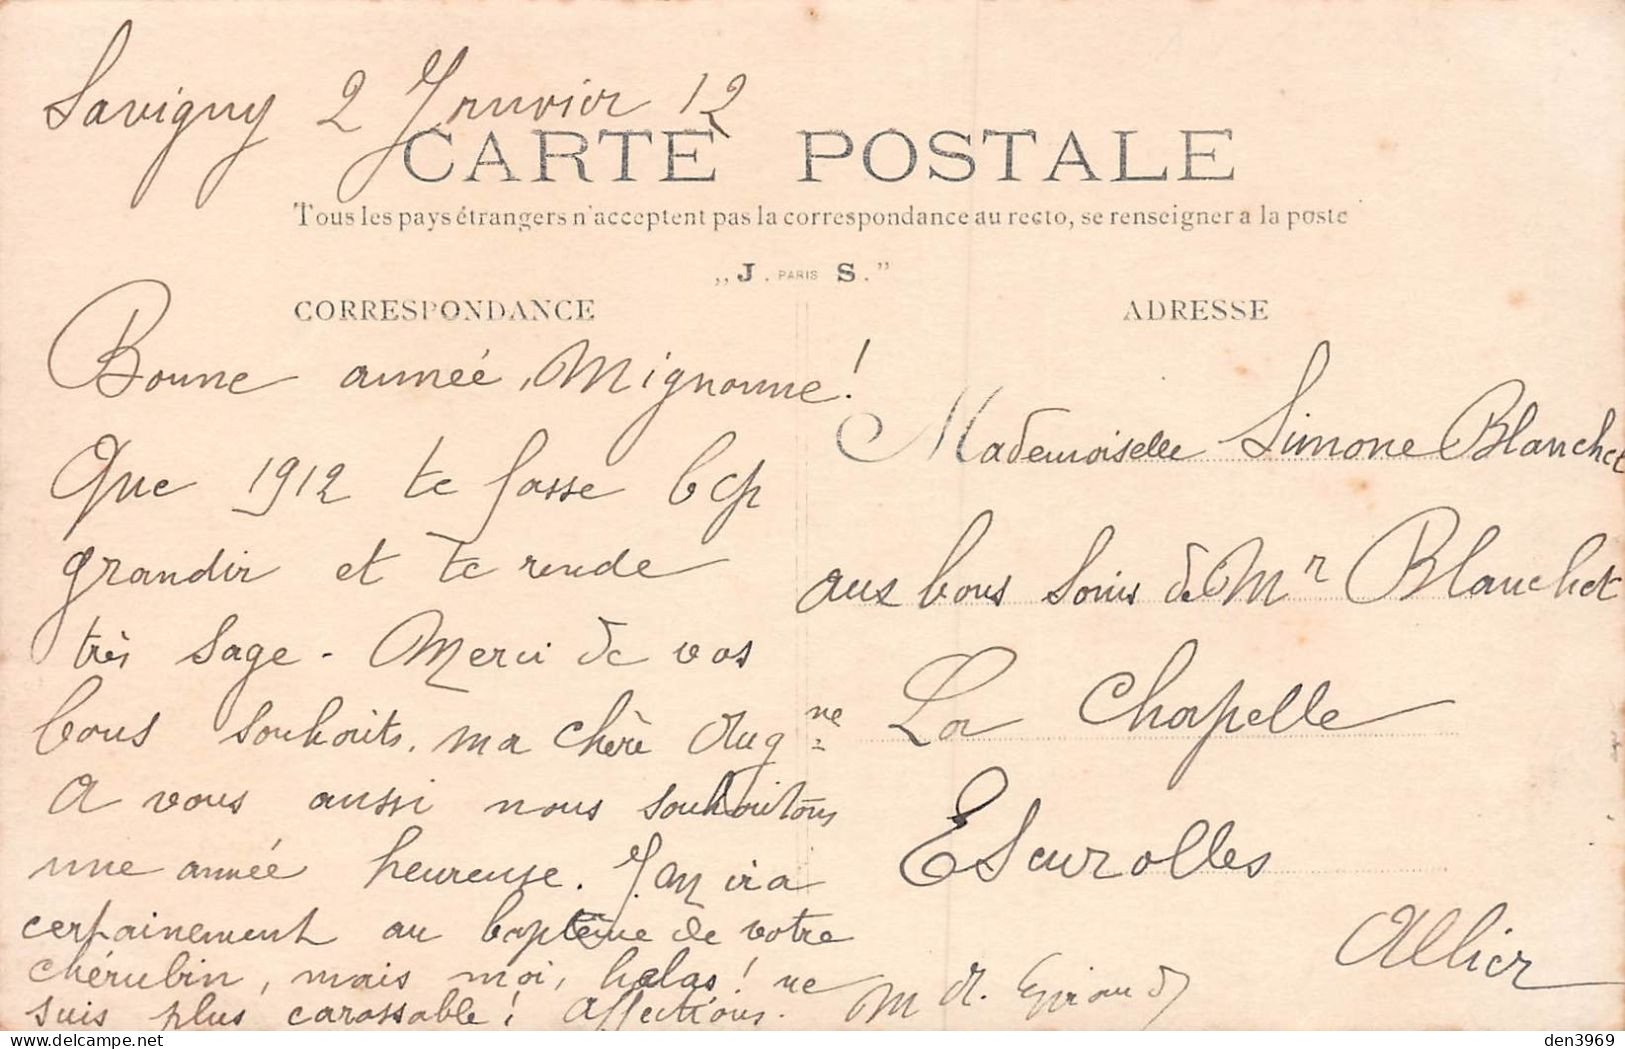 Savigny 2 Janvier 12
CARTE POSTALE
Tous les pays étrangers n'acceptent pas la correspondance au recto, se renseigner a la poste
„J. PARIS S."
CORRESPONDANCE
Bonne année, Mignonne!
Que 1912 te fasse bcp
grandir et te rende
très sage - Merci de vos
bons souhaits, ma chère Aug ne
A vous aussi nous souhaitons
une année heureuse. J. M ira
certainement au baptême de votre
chérubin, mais moi, helas! ne
suis plus carossable! Affections.
M A. Giraud
ADRESSE
Mademoiselle Simone Blanchet
aux bons soins de Mr Blanchet
La Chapelle
Escurolles
Allier
www.delcampe.net
den3969